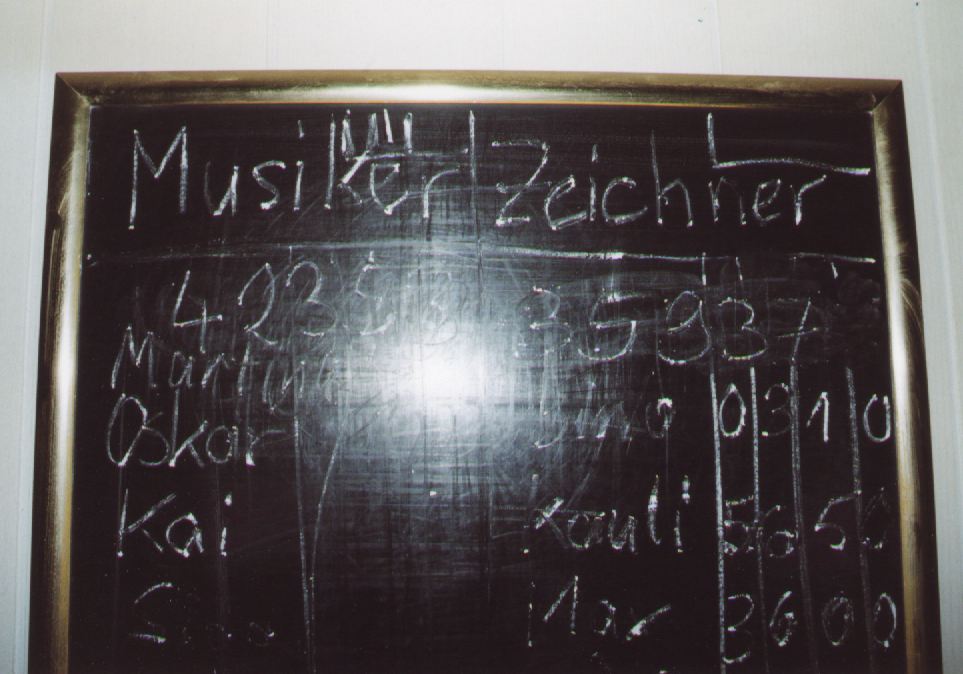 Musiker Zeichner
4 2 3 5 3 3 5 9 3 7
Martina
Oskar 0 3 1 0
Kai Kauli 5 6 5 0
Mar 3 6 0 0